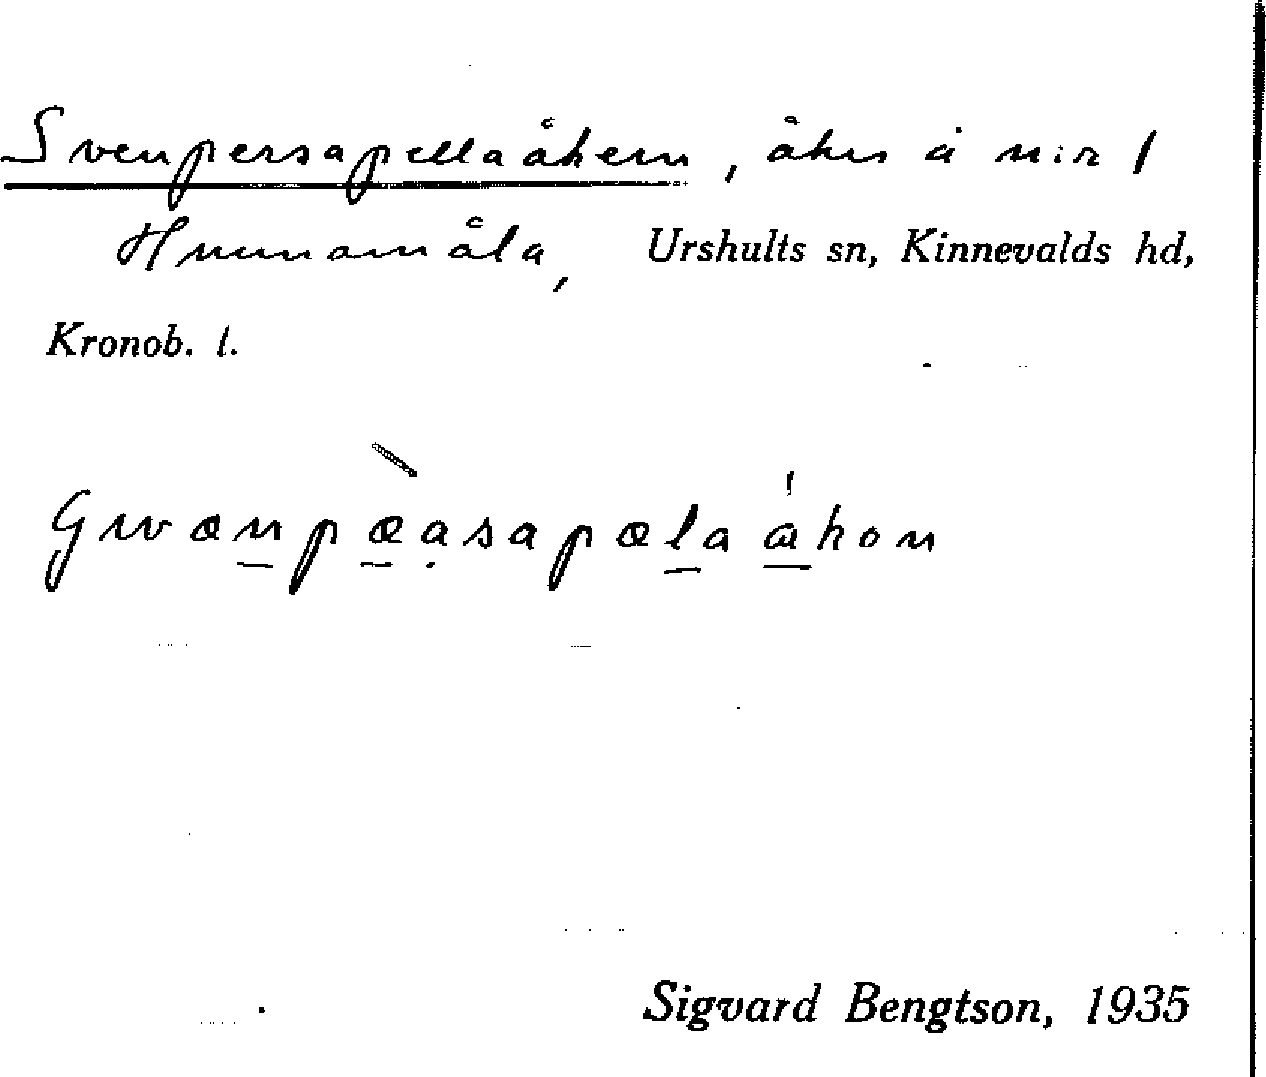 Svenpersapellaåkern, åker å n:r 1
Hunnamåla, Urshults sn, Kinnevalds hd,
Kronob. l.
Sigvard Bengtson, 1935